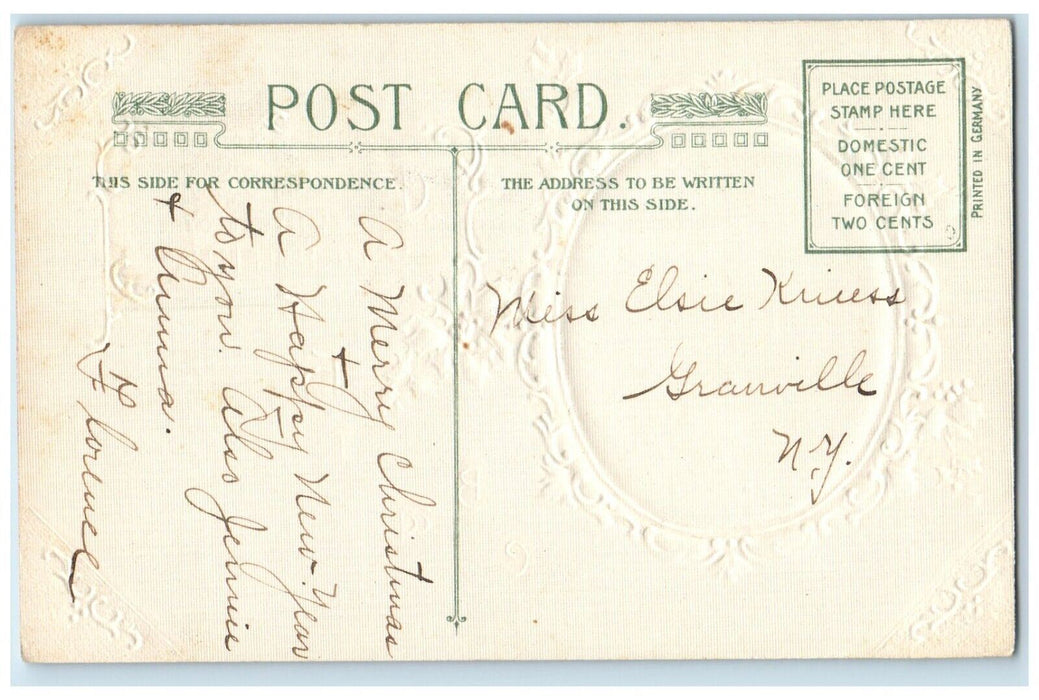 POST CARD.
THIS SIDE FOR CORRESPONDENCE.
THE ADDRESS TO BE WRITTEN
ON THIS SIDE.
PLACE POSTAGE
STAMP HERE
DOMESTIC
ONE CENT
FOREIGN
TWO CENTS
PRINTED IN GERMANY
A Merry Christmas
+
A Happy New Year
to you. Also Jennie
+ Anna.
Florence
Miss Elsie
Granville
N.Y.